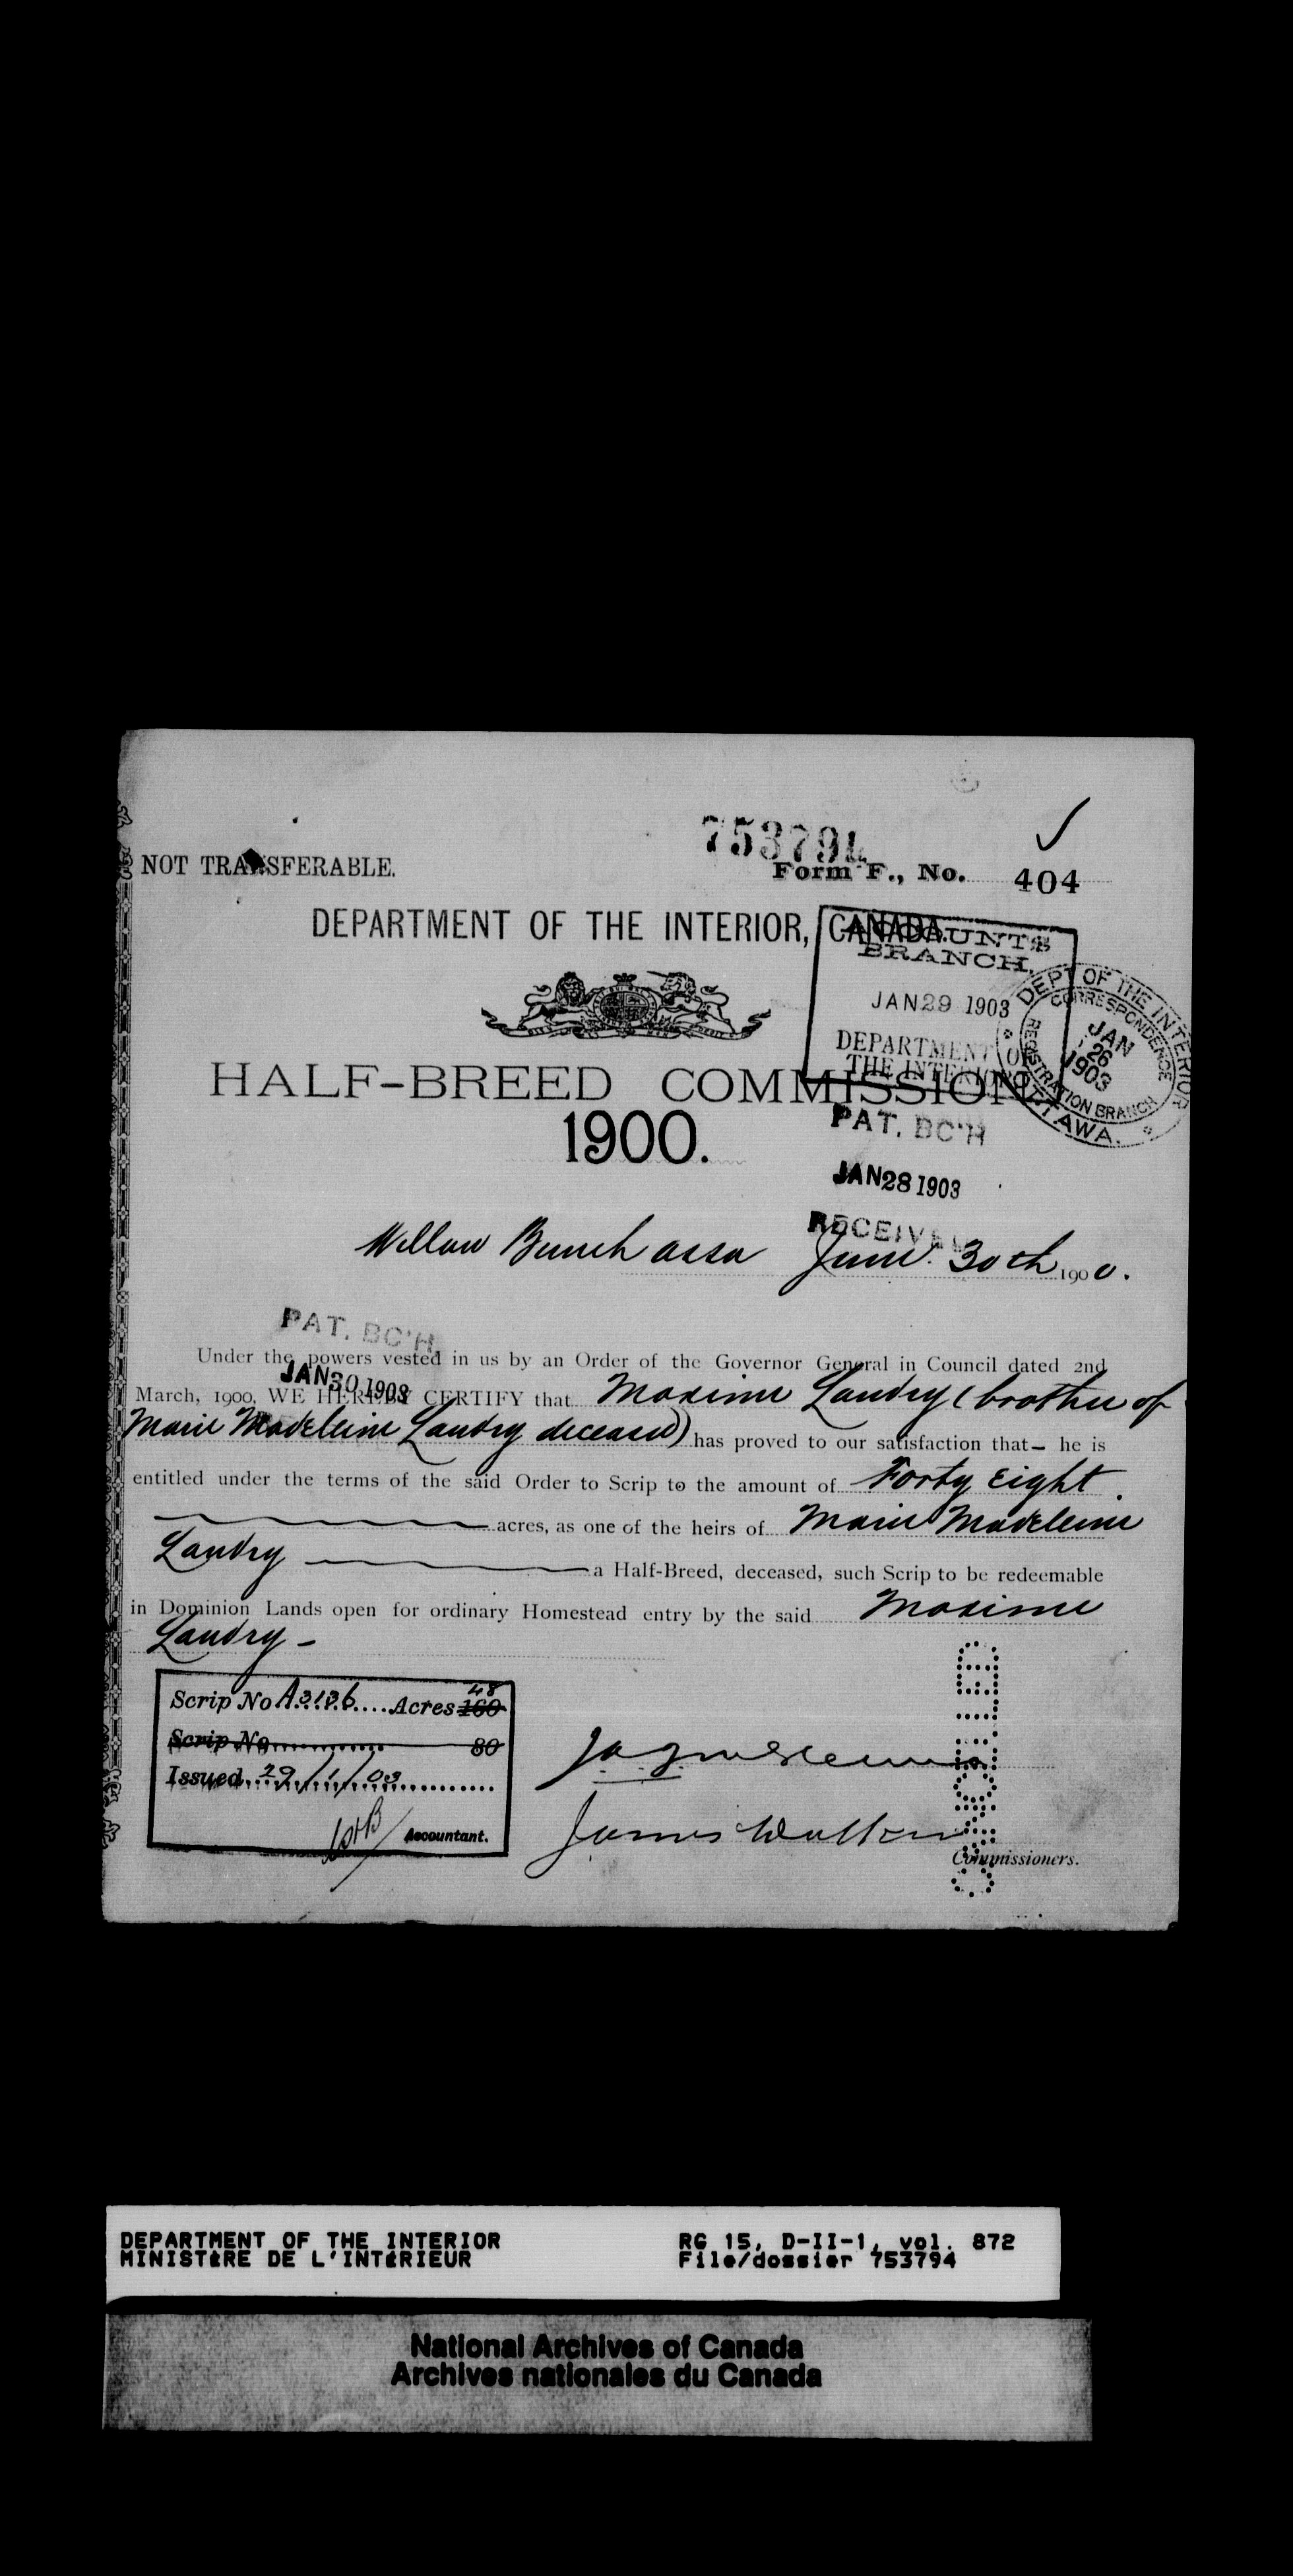 753794
NOT TRANSFERABLE.
Form F., No. 404
DEPARTMENT OF THE INTERIOR, CANADA.
ACCOUNTS
BRANCH.
JAN 29 1903
DEPARTMENT OF
THE INTERIOR
DEPT OF THE INTERIOR
CORRESPONDENCE
JAN
26
1903
REGISTRATION BRANCH
OTTAWA.
HALF-BREED COMMISSION
1900.
PAT. BC'H
JAN 28 1903
RECEIVED
Willow Bunch Assa June 30th 1900.
PAT. BC'H
JAN 30 1903
Under the powers vested in us by an Order of the Governor General in Council dated 2nd
March, 1900, WE HEREBY CERTIFY that Maxime Landry (brother of
Marie Madeleine Landry deceased) has proved to our satisfaction that — he is
entitled under the terms of the said Order to Scrip to the amount of Forty Eight
acres, as one of the heirs of Marie Madeleine
Landry a Half-Breed, deceased, such Scrip to be redeemable
in Dominion Lands open for ordinary Homestead entry by the said Maxime
Landry —
Scrip No A.3136 Acres 160 48
Scrip No 80
Issued 29/1/03
Accountant.
James Walker
Commissioners.
DEPARTMENT OF THE INTERIOR
MINISTÈRE DE L'INTÉRIEUR
RG 15, D-II-1, vol. 872
File/dossier 753794
National Archives of Canada
Archives nationales du Canada